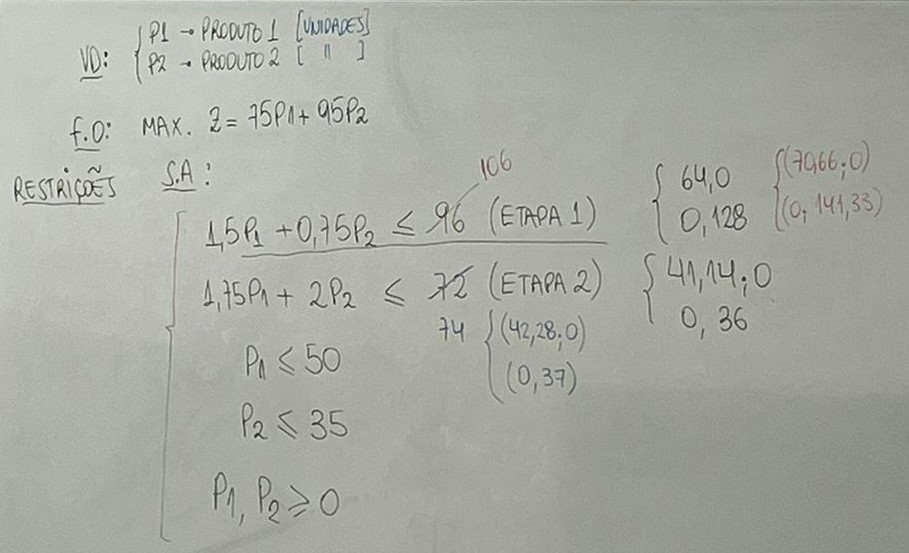 VD: { P1 → PRODUTO 1 [UNIDADES]
P2 → PRODUTO 2 [ " ]
F.O: MAX. Z = 75P1 + 95P2
RESTRIÇÕES S.A:
106
1,5P1 + 0,75P2 ≤ 96 (ETAPA 1) { 64,0 {(70,66;0)
0,128 (0, 141,33)
1,75P1 + 2P2 ≤ 72 (ETAPA 2) { 41,14;0
0, 36
74 {(42,28;0)
(0,37)
P1 ≤ 50
P2 ≤ 35
P1, P2 ≥ 0